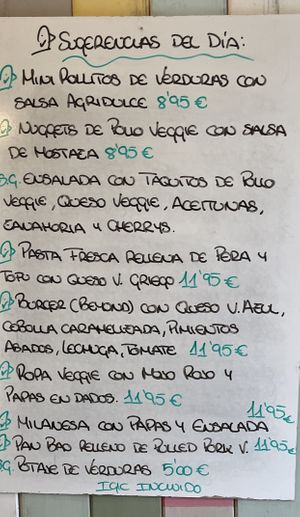 Sugerencias del Día:
Mini Rollitos de Verduras con
Salsa Agridulce 8'95 €
Nuggets de Pollo Veggie con Salsa
de Mostaza 8'95 €
S.G. Ensalada con Taquitos de Pollo
Veggie, Queso Veggie, Aceitunas,
Zanahoria y Cherrys.
Pasta Fresca Rellena de Pera y
Tofu con Queso V. Griego 11'95 €
Burger (Beyond) con Queso V. Azul,
Cebolla Caramelizada, Pimientos
Asados, Lechuga, Tomate 11'95 €
Ropa Veggie con Mojo Rojo y
Papas en Dados. 11'95 €
Milanesa con Papas y Ensalada 11'95 €
Pan Bao Relleno de Pulled Pork V. 11'95 €
S.G. Potaje de Verduras 5'00 €
IGIC Incluido